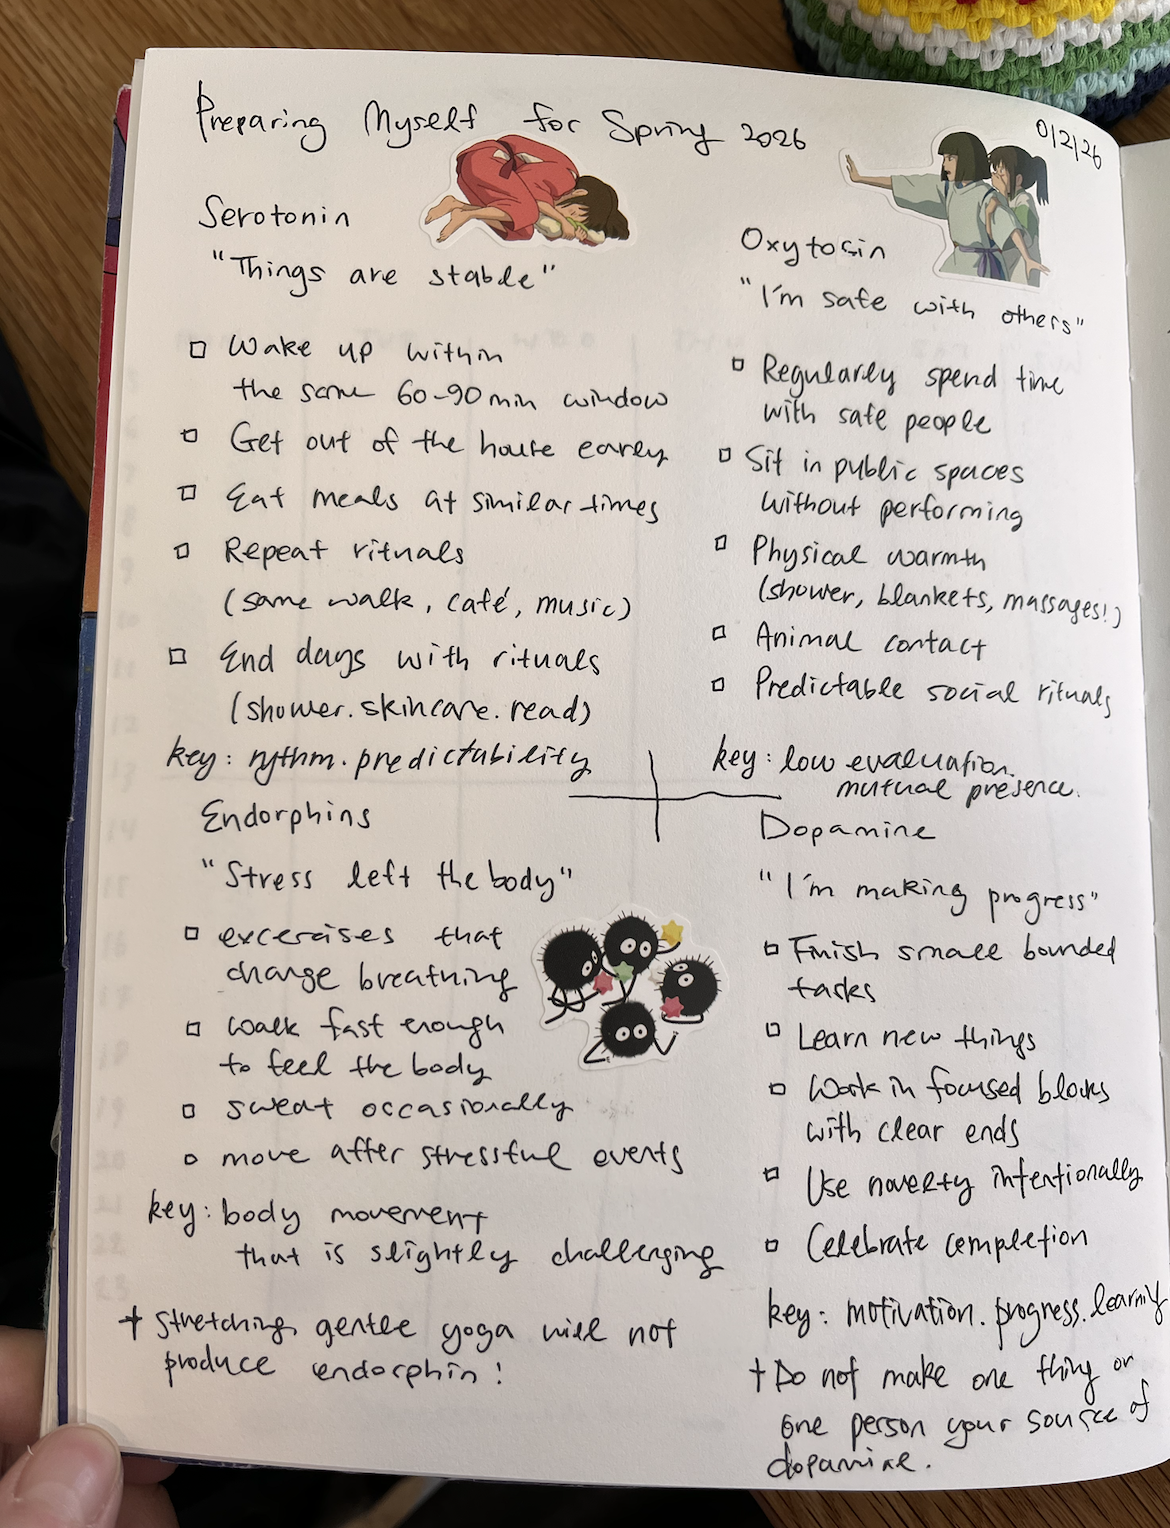 Preparing Myself for Spring 2026
0/2/26
Serotonin
"Things are stable"
Wake up within
the same 60-90 min window
Get out of the house early
Eat meals at similar times
Repeat rituals
(same walk, café, music)
End days with rituals
(shower. skincare. read)
key: rythm. predictability
Oxytocin
"I'm safe with others"
Regularly spend time
with safe people
Sit in public spaces
without performing
Physical warmth
(shower, blankets, massages!)
Animal contact
Predictable social rituals
key: low evaluation.
mutual presence.
Endorphins
"Stress left the body"
excercises that
change breathing
walk fast enough
to feel the body
sweat occasionally
move after stressful events
key: body movement
that is slightly challenging
+ stretching, gentle yoga will not
produce endorphin!
Dopamine
"I'm making progress"
Finish small bounded
tasks
Learn new things
Work in focused blocks
with clear ends
Use noverty intentionally
Celebrate completion
key: motivation. progress. learning
+ Do not make one thing or
one person your source of
dopamine.